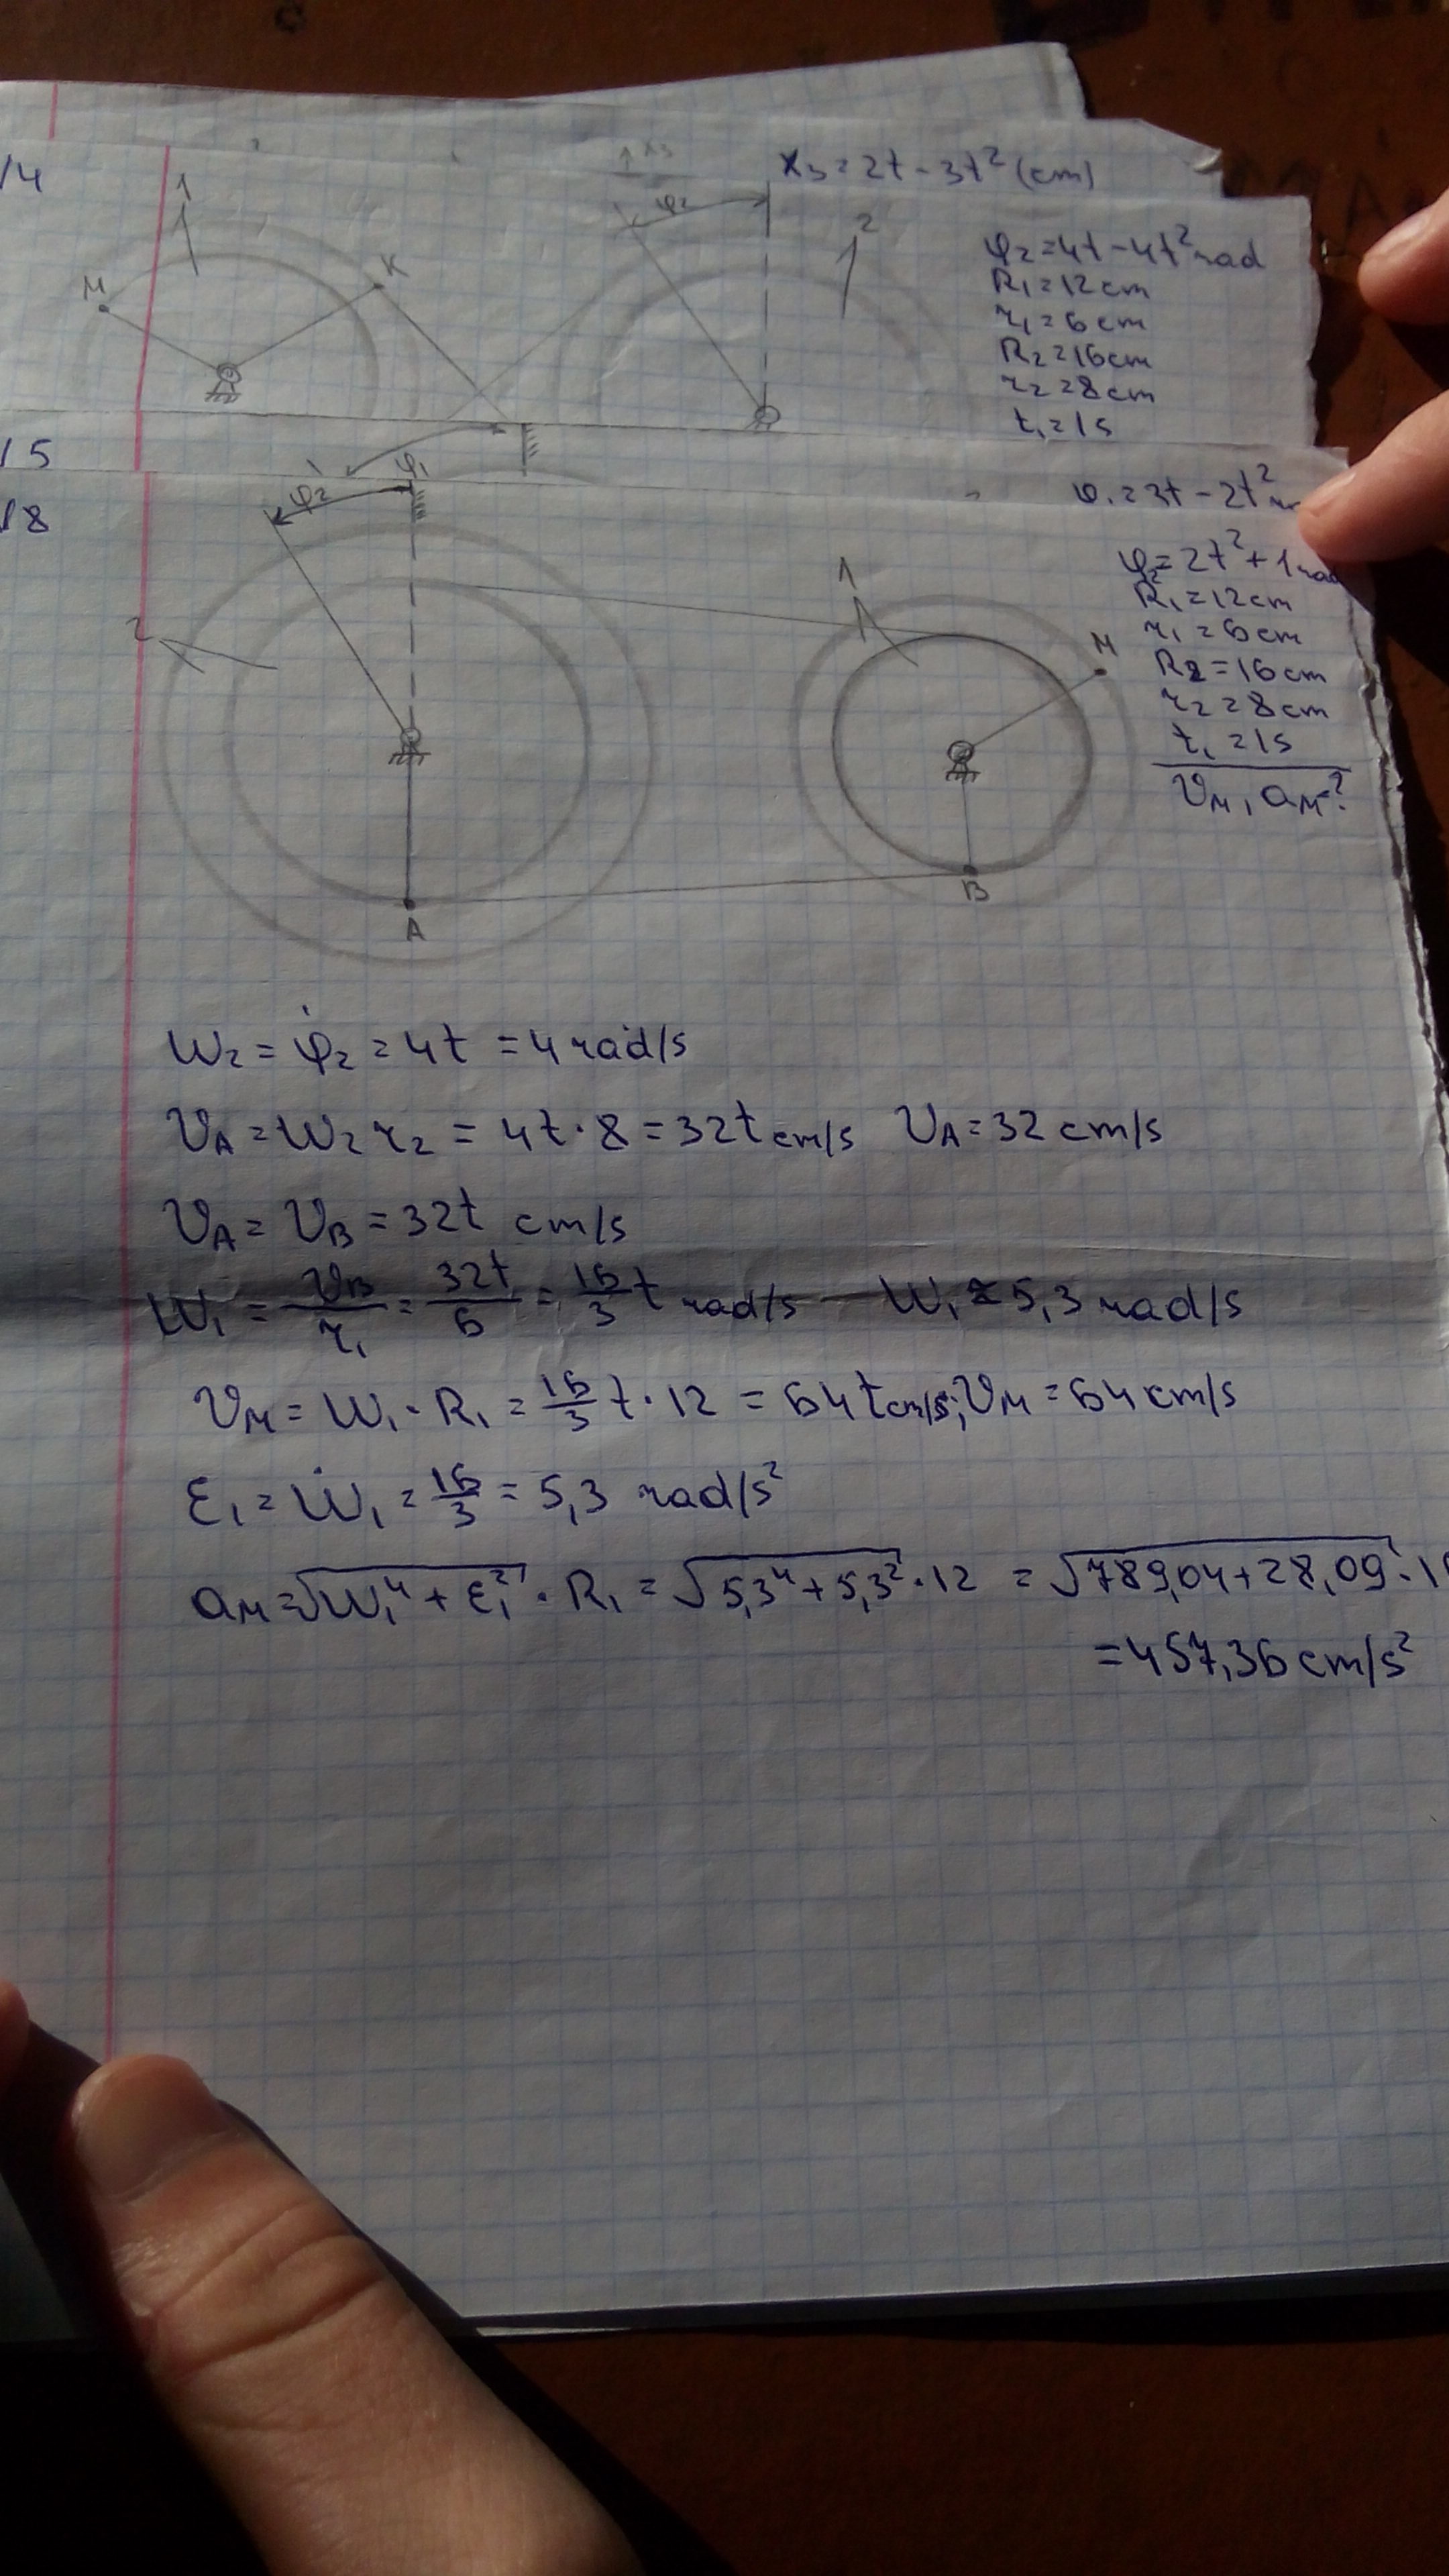 14
1
M
K
x₃
φ₂
2
x₃ = 2t - 3t² (cm)
φ₂ = 4t - 4t² rad
R₁ = 12 cm
r₁ = 6 cm
R₂ = 16 cm
r₂ = 8 cm
t₁ = 1s
15
φ₁
φ₁ = 3t - 2t²
18
φ₂
2
1
M
A
B
φ₂ = 2t² + 1 rad
R₁ = 12 cm
r₁ = 6 cm
R₂ = 16 cm
r₂ = 8 cm
t₁ = 1s
v_M, a_M - ?
ω₂ = φ̇₂ = 4t = 4 rad/s
v_A = ω₂ r₂ = 4t · 8 = 32t cm/s v_A = 32 cm/s
v_A = v_B = 32t cm/s
ω₁ = v_B/r₁ = 32t/6 = 16/3 t rad/s ω₁ ≈ 5,3 rad/s
v_M = ω₁ · R₁ = 16/3 t · 12 = 64t cm/s; v_M = 64 cm/s
ε₁ = ω̇₁ = 16/3 = 5,3 rad/s²
a_M = √(ω₁⁴ + ε₁²) · R₁ = √(5,3⁴ + 5,3²) · 12 = √(789,04 + 28,09) · 1
= 457,36 cm/s²